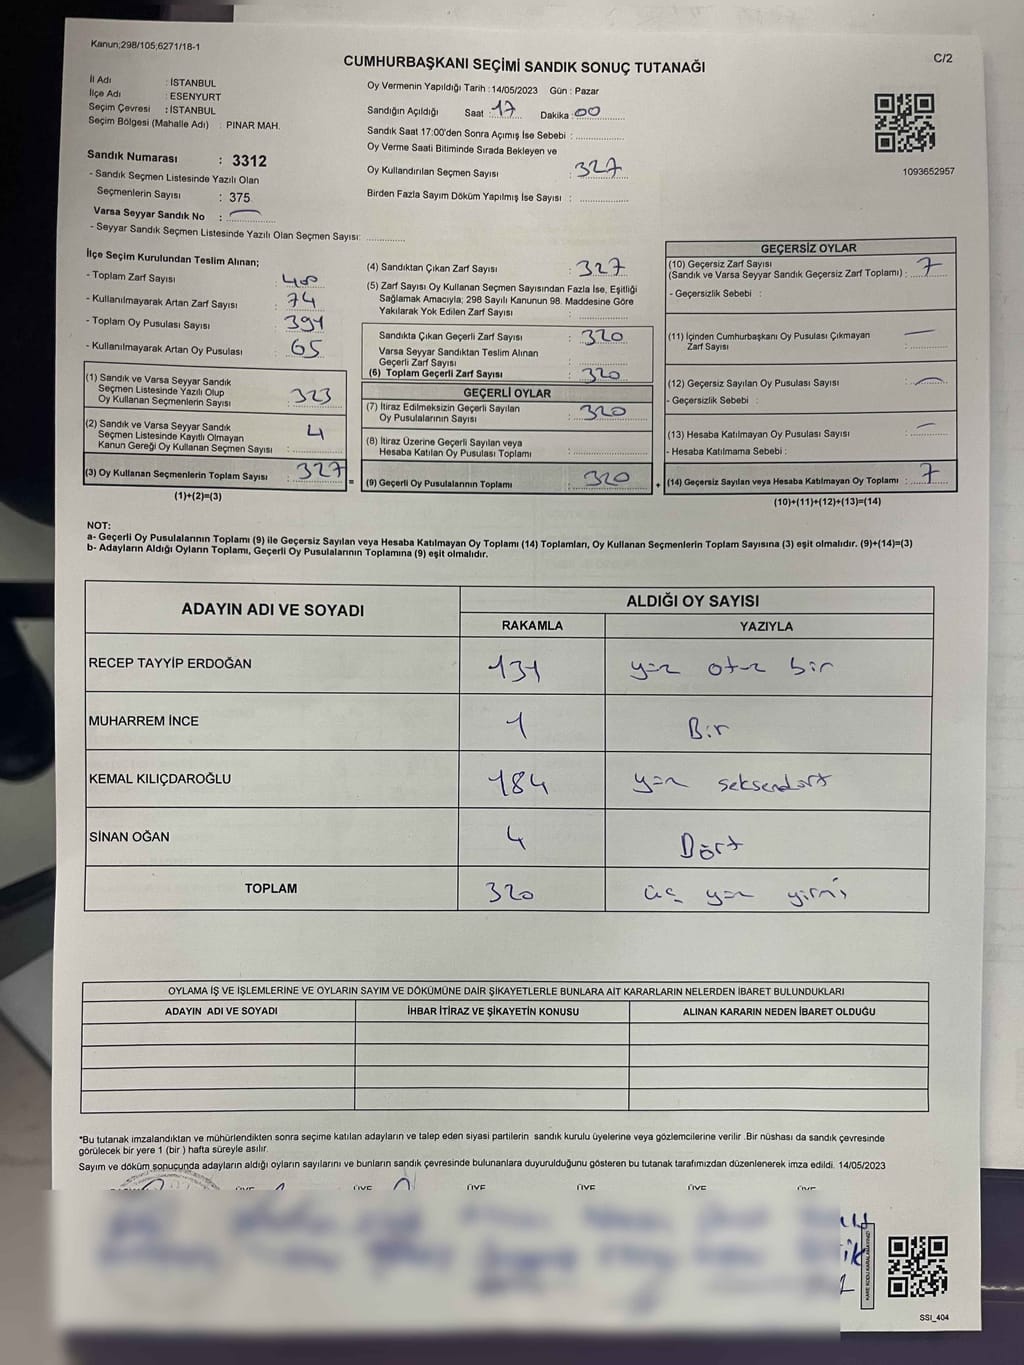 Kanun;298/105;6271/18-1
C/2
CUMHURBAŞKANI SEÇİMİ SANDIK SONUÇ TUTANAĞI
İl Adı : İSTANBUL
İlçe Adı : ESENYURT
Seçim Çevresi : İSTANBUL
Seçim Bölgesi (Mahalle Adı) : PINAR MAH.
Sandık Numarası : 3312
- Sandık Seçmen Listesinde Yazılı Olan
Seçmenlerin Sayısı : 375
Varsa Seyyar Sandık No :
- Seyyar Sandık Seçmen Listesinde Yazılı Olan Seçmen Sayısı:
Oy Vermenin Yapıldığı Tarih : 14/05/2023 Gün : Pazar
Sandığın Açıldığı Saat : 17 Dakika : 00
Sandık Saat 17:00'den Sonra Açımış İse Sebebi :
Oy Verme Saati Bitiminde Sırada Bekleyen ve
Oy Kullandırılan Seçmen Sayısı : 327
Birden Fazla Sayım Döküm Yapılmış İse Sayısı :
1093652957
İlçe Seçim Kurulundan Teslim Alınan;
- Toplam Zarf Sayısı : 400
- Kullanılmayarak Artan Zarf Sayısı : 74
- Toplam Oy Pusulası Sayısı : 391
- Kullanılmayarak Artan Oy Pusulası : 65
(1) Sandık ve Varsa Seyyar Sandık
Seçmen Listesinde Yazılı Olup
Oy Kullanan Seçmenlerin Sayısı : 323
(2) Sandık ve Varsa Seyyar Sandık
Seçmen Listesinde Kayıtlı Olmayan
Kanun Gereği Oy Kullanan Seçmen Sayısı : 4
(3) Oy Kullanan Seçmenlerin Toplam Sayısı : 327
(1)+(2)=(3)
(4) Sandıktan Çıkan Zarf Sayısı : 327
(5) Zarf Sayısı Oy Kullanan Seçmen Sayısından Fazla İse, Eşitliği
Sağlamak Amacıyla; 298 Sayılı Kanunun 98. Maddesine Göre
Yakılarak Yok Edilen Zarf Sayısı :
Sandıkta Çıkan Geçerli Zarf Sayısı : 320
Varsa Seyyar Sandıktan Teslim Alınan
Geçerli Zarf Sayısı :
(6) Toplam Geçerli Zarf Sayısı : 320
GEÇERLİ OYLAR
(7) İtiraz Edilmeksizin Geçerli Sayılan
Oy Pusulalarının Sayısı : 320
(8) İtiraz Üzerine Geçerli Sayılan veya
Hesaba Katılan Oy Pusulası Toplamı :
= (9) Geçerli Oy Pusulalarının Toplamı : 320 +
GEÇERSİZ OYLAR
(10) Geçersiz Zarf Sayısı
(Sandık ve Varsa Seyyar Sandık Geçersiz Zarf Toplamı) : 7
- Geçersizlik Sebebi :
(11) İçinden Cumhurbaşkanı Oy Pusulası Çıkmayan
Zarf Sayısı :
(12) Geçersiz Sayılan Oy Pusulası Sayısı :
- Geçersizlik Sebebi :
(13) Hesaba Katılmayan Oy Pusulası Sayısı :
- Hesaba Katılmama Sebebi :
(14) Geçersiz Sayılan veya Hesaba Katılmayan Oy Toplamı : 7
(10)+(11)+(12)+(13)=(14)
NOT:
a- Geçerli Oy Pusulalarının Toplamı (9) ile Geçersiz Sayılan veya Hesaba Katılmayan Oy Toplamı (14) Toplamları, Oy Kullanan Seçmenlerin Toplam Sayısına (3) eşit olmalıdır. (9)+(14)=(3)
b- Adayların Aldığı Oyların Toplamı, Geçerli Oy Pusulalarının Toplamına (9) eşit olmalıdır.
ADAYIN ADI VE SOYADI ALDIĞI OY SAYISI
RAKAMLA YAZIYLA
RECEP TAYYİP ERDOĞAN 131 yüz otuz bir
MUHARREM İNCE 1 Bir
KEMAL KILIÇDAROĞLU 184 yüz seksendört
SİNAN OĞAN 4 Dört
TOPLAM 320 üç yüz yirmi
OYLAMA İŞ VE İŞLEMLERINE VE OYLARIN SAYIM VE DÖKÜMÜNE DAİR ŞİKAYETLERLE BUNLARA AİT KARARLARIN NELERDEN İBARET BULUNDUKLARI
ADAYIN ADI VE SOYADI İHBAR İTİRAZ VE ŞİKAYETİN KONUSU ALINAN KARARIN NEDEN İBARET OLDUĞU
*Bu tutanak imzalandıktan ve mühürlendikten sonra seçime katılan adayların ve talep eden siyasi partilerin sandık kurulu üyelerine veya gözlemcilerine verilir .Bir nüshası da sandık çevresinde
görülecek bir yere 1 (bir ) hafta süreyle asılır.
Sayım ve döküm sonucunda adayların aldığı oyların sayılarını ve bunların sandık çevresinde bulunanlara duyurulduğunu gösteren bu tutanak tarafımızdan düzenlenerek imza edildi. 14/05/2023
SSI_404